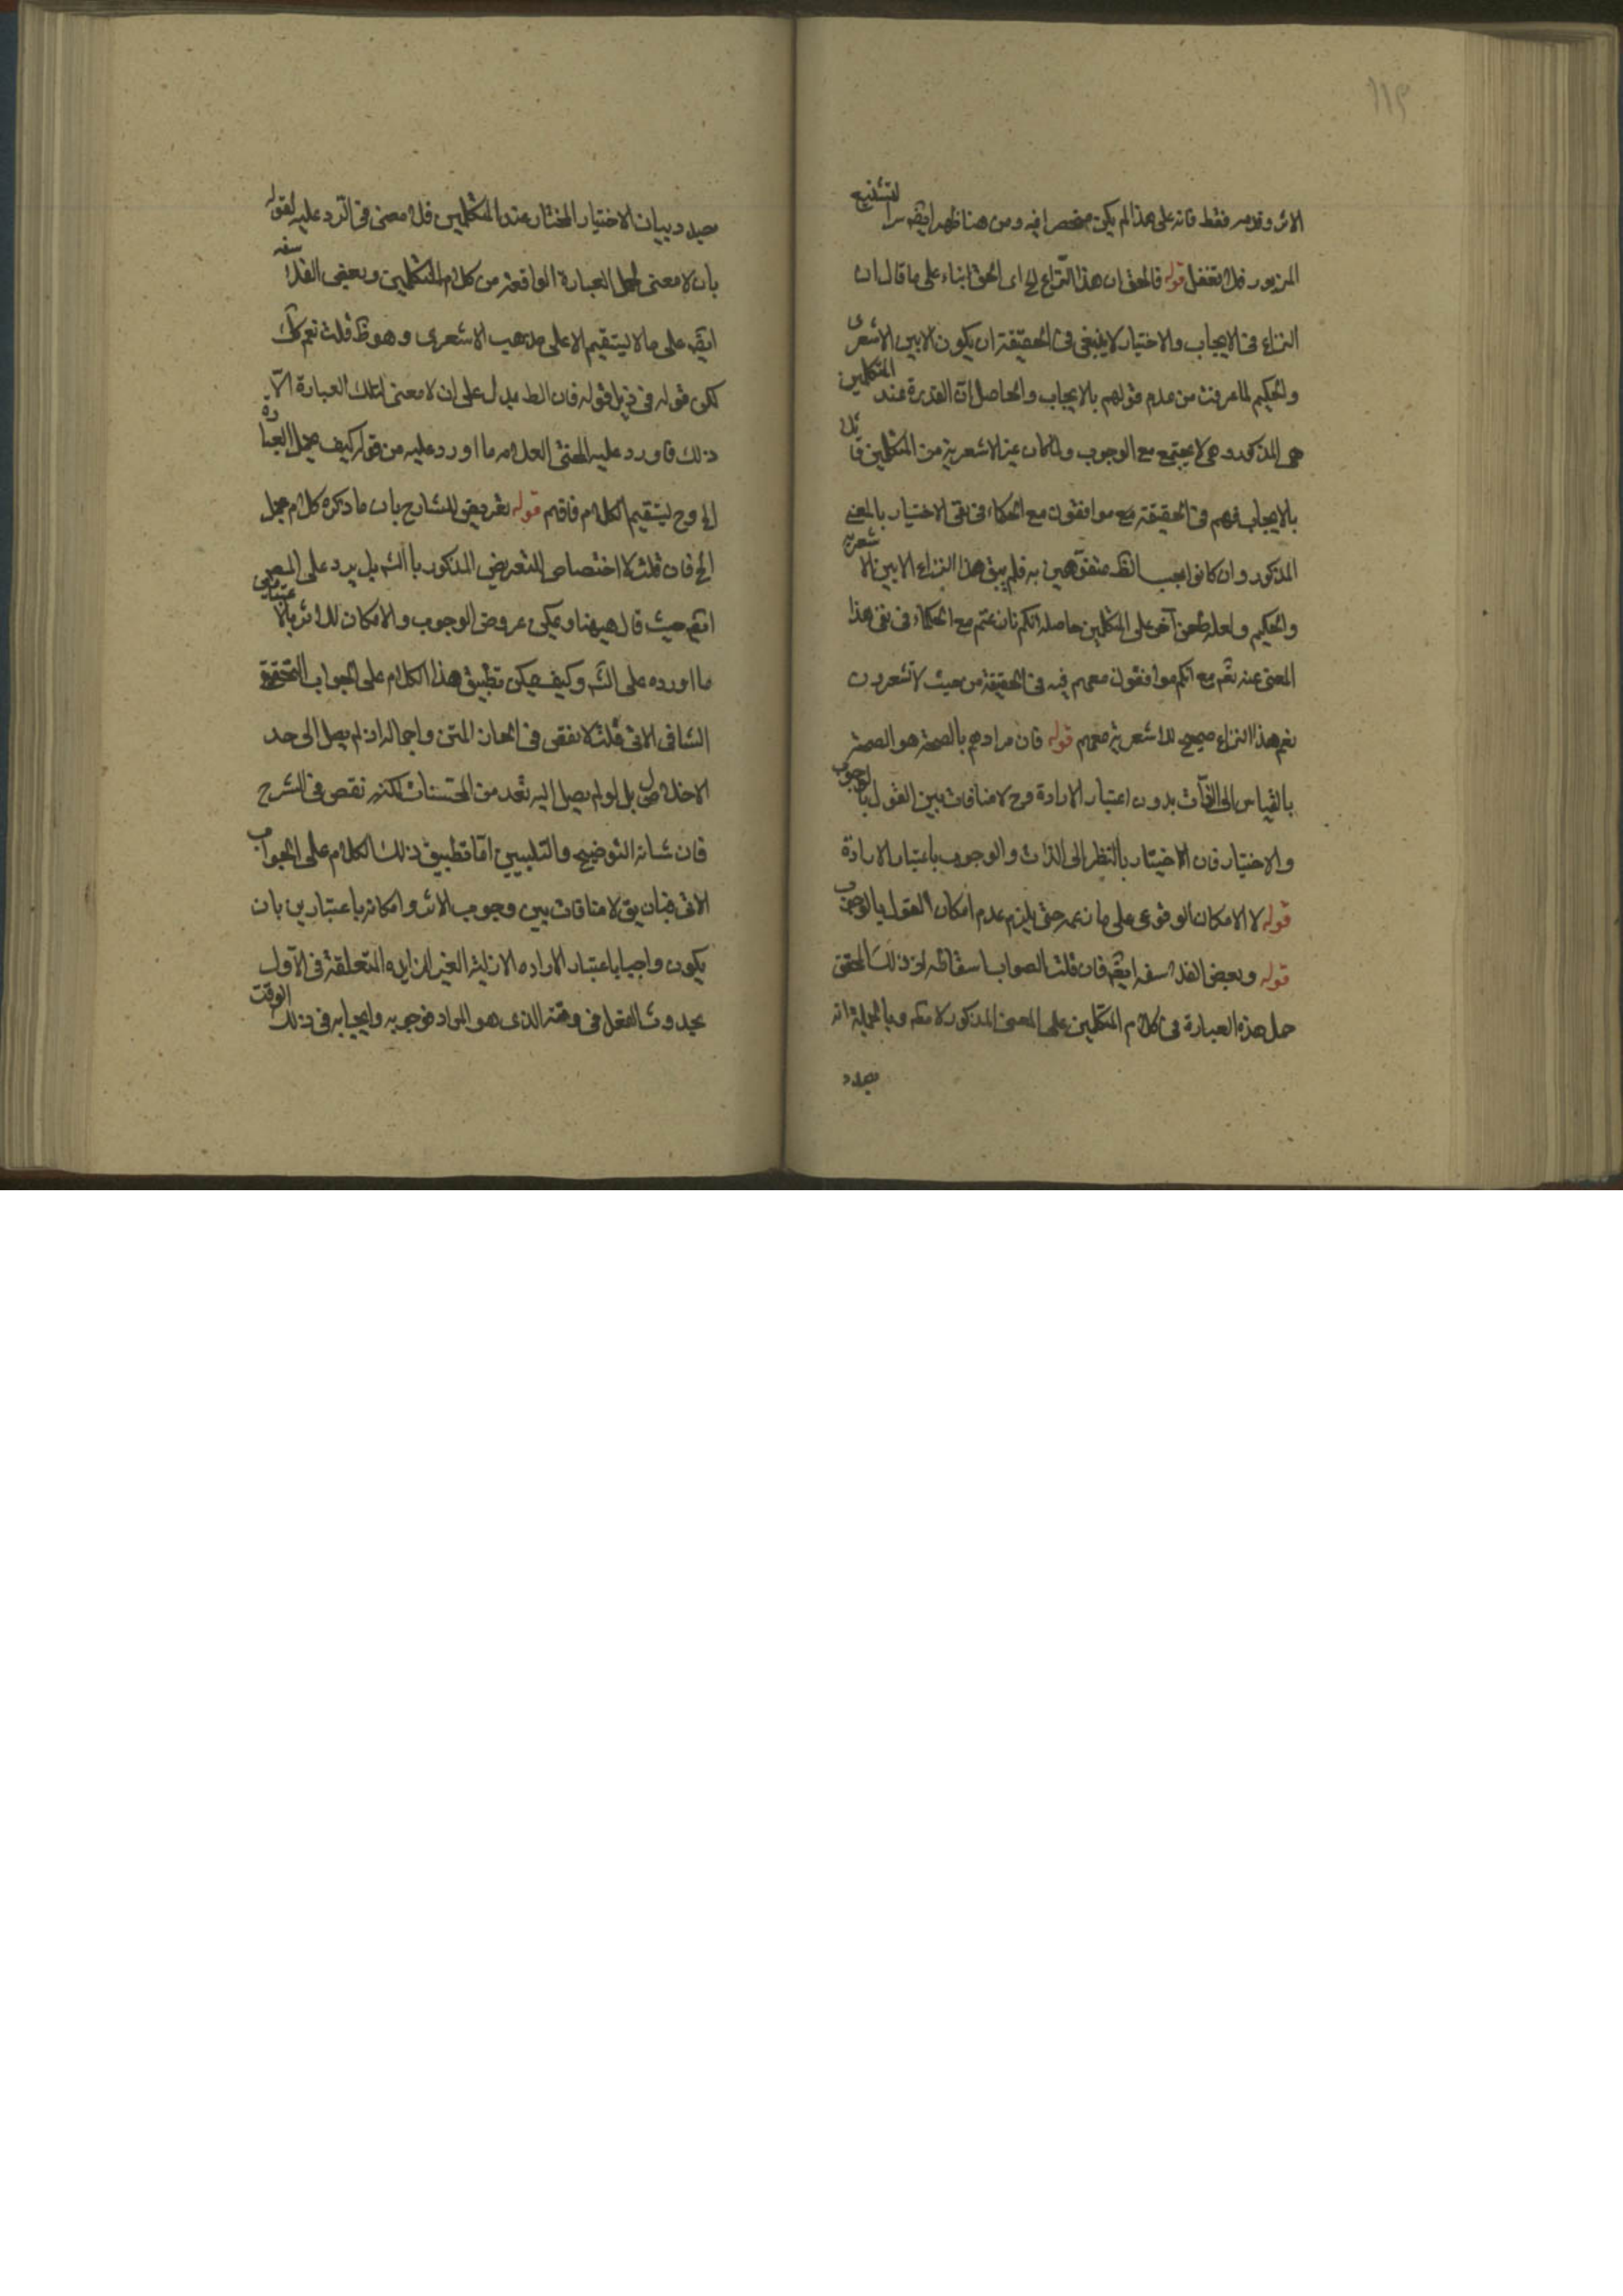 ١١٩
الاثر وقدمه فقط فانه على هذا لم يكن منحصرا فيه ومن هنا ظهر ايضا سر التشنيع
المزبور فلا تغفل قوله فالحق ان هذا النزاع الخ اى الحق بناء على ما قال ان
النزاع فى الايجاب والاختيار لا ينبغى فى الحقيقة ان يكون الا بين الاشعرى
والحكيم لما عرفت من عدم قولهم بالايجاب والحاصل ان القدرة عند المتكلمين
هى المذكور وهى لا يجتمع مع الوجوب ولما كان غير الاشعرية من المتكلمين قائلا
بالايجاب فهم فى الحقيقة مع موافقون مع الحكماء فى نفى الاختيار بالمعنى
المذكور وان كانوا بحسب الظ متفوهين به فلم يبق هذا النزاع الا بين الاشعرية
والحكيم ولعله طعن آخر على المتكلمين حاصله انكم نازعتم مع الحكماء فى نفى هذا
المعنى عنه تعم مع انكم موافقون معهم فيه فى الحقيقة من حيث لا تشعرون
نعم هذا النزاع صحيح للاشعرية معهم قوله فان مرادهم بالصحة هو الصحة
بالقياس الى الذات بدون اعتبار الارادة وح لا منافات بين القول بالوجوب
والاختيار فان الاختيار بالنظر الى الذات والوجوب باعتبار الارادة
قوله لا الامكان الوقوعى على ما زعمه حتى يلزم عدم امكان القول بالوجوب
قوله وبعض الفلاسفه ايضا فان قلت الصواب اسقاطه لان ذلك المحقق
حمل هذه العبارة فى كلام المتكلمين على المعنى المذكور لا مطه وبالجملة انه
بصدد
بصدد بيان الاختيار المختار عند المتكلمين فلا معنى فى الرد عليه لقوله
بان لا معنى لحمل العبارة الواقعة من كلام المتكلمين وبعض الفلاسفه
ايضا على ما لا يستقيم الا على مذهب الاشعرى وهو ظ قلت نعم كك
لكن قوله فى ذيل قوله فان الظ يدل على ان لا معنى لتلك العبارة الا
ذلك فاورد عليه المحشى العلامه ما اورد عليه من قوله كيف يحمل العبارة
الخ وح ليستقيم الكلام فافهم قوله تعريض للشارح بان ما ذكره كلام مجمل
الخ فان قلت لا اختصاص للتعريض المذكور بالشه بل يرد على المص
ايضا حيث قال هيهنا ويمكن عروض الوجوب والامكان للاثر بالاعتبارين
ما اورده على الشه وكيف يمكن تطبيق هذا الكلام على الجواب التحقيق
الشافى الاتى قلت لا نقص فى اتحان المتن واجماله اذ لم يصل الى حد
الاخلال بل لو لم يصل اليه تعد من المحسنات لكنه نقص فى الشرح
فان شانه التوضيح والتبيين اما تطبيق ذلك الكلام على الجواب
الاتى فبان يق لا منافات بين وجوب الاثر وامكانه باعتبارين بان
يكون واجبا باعتبار الاراده الازليه الغير الزايده المتعلقة فى الاول
بحدوث الفعل فى وقته الذى هو المراد فوجوبه وايجابه فى ذلك الوقت